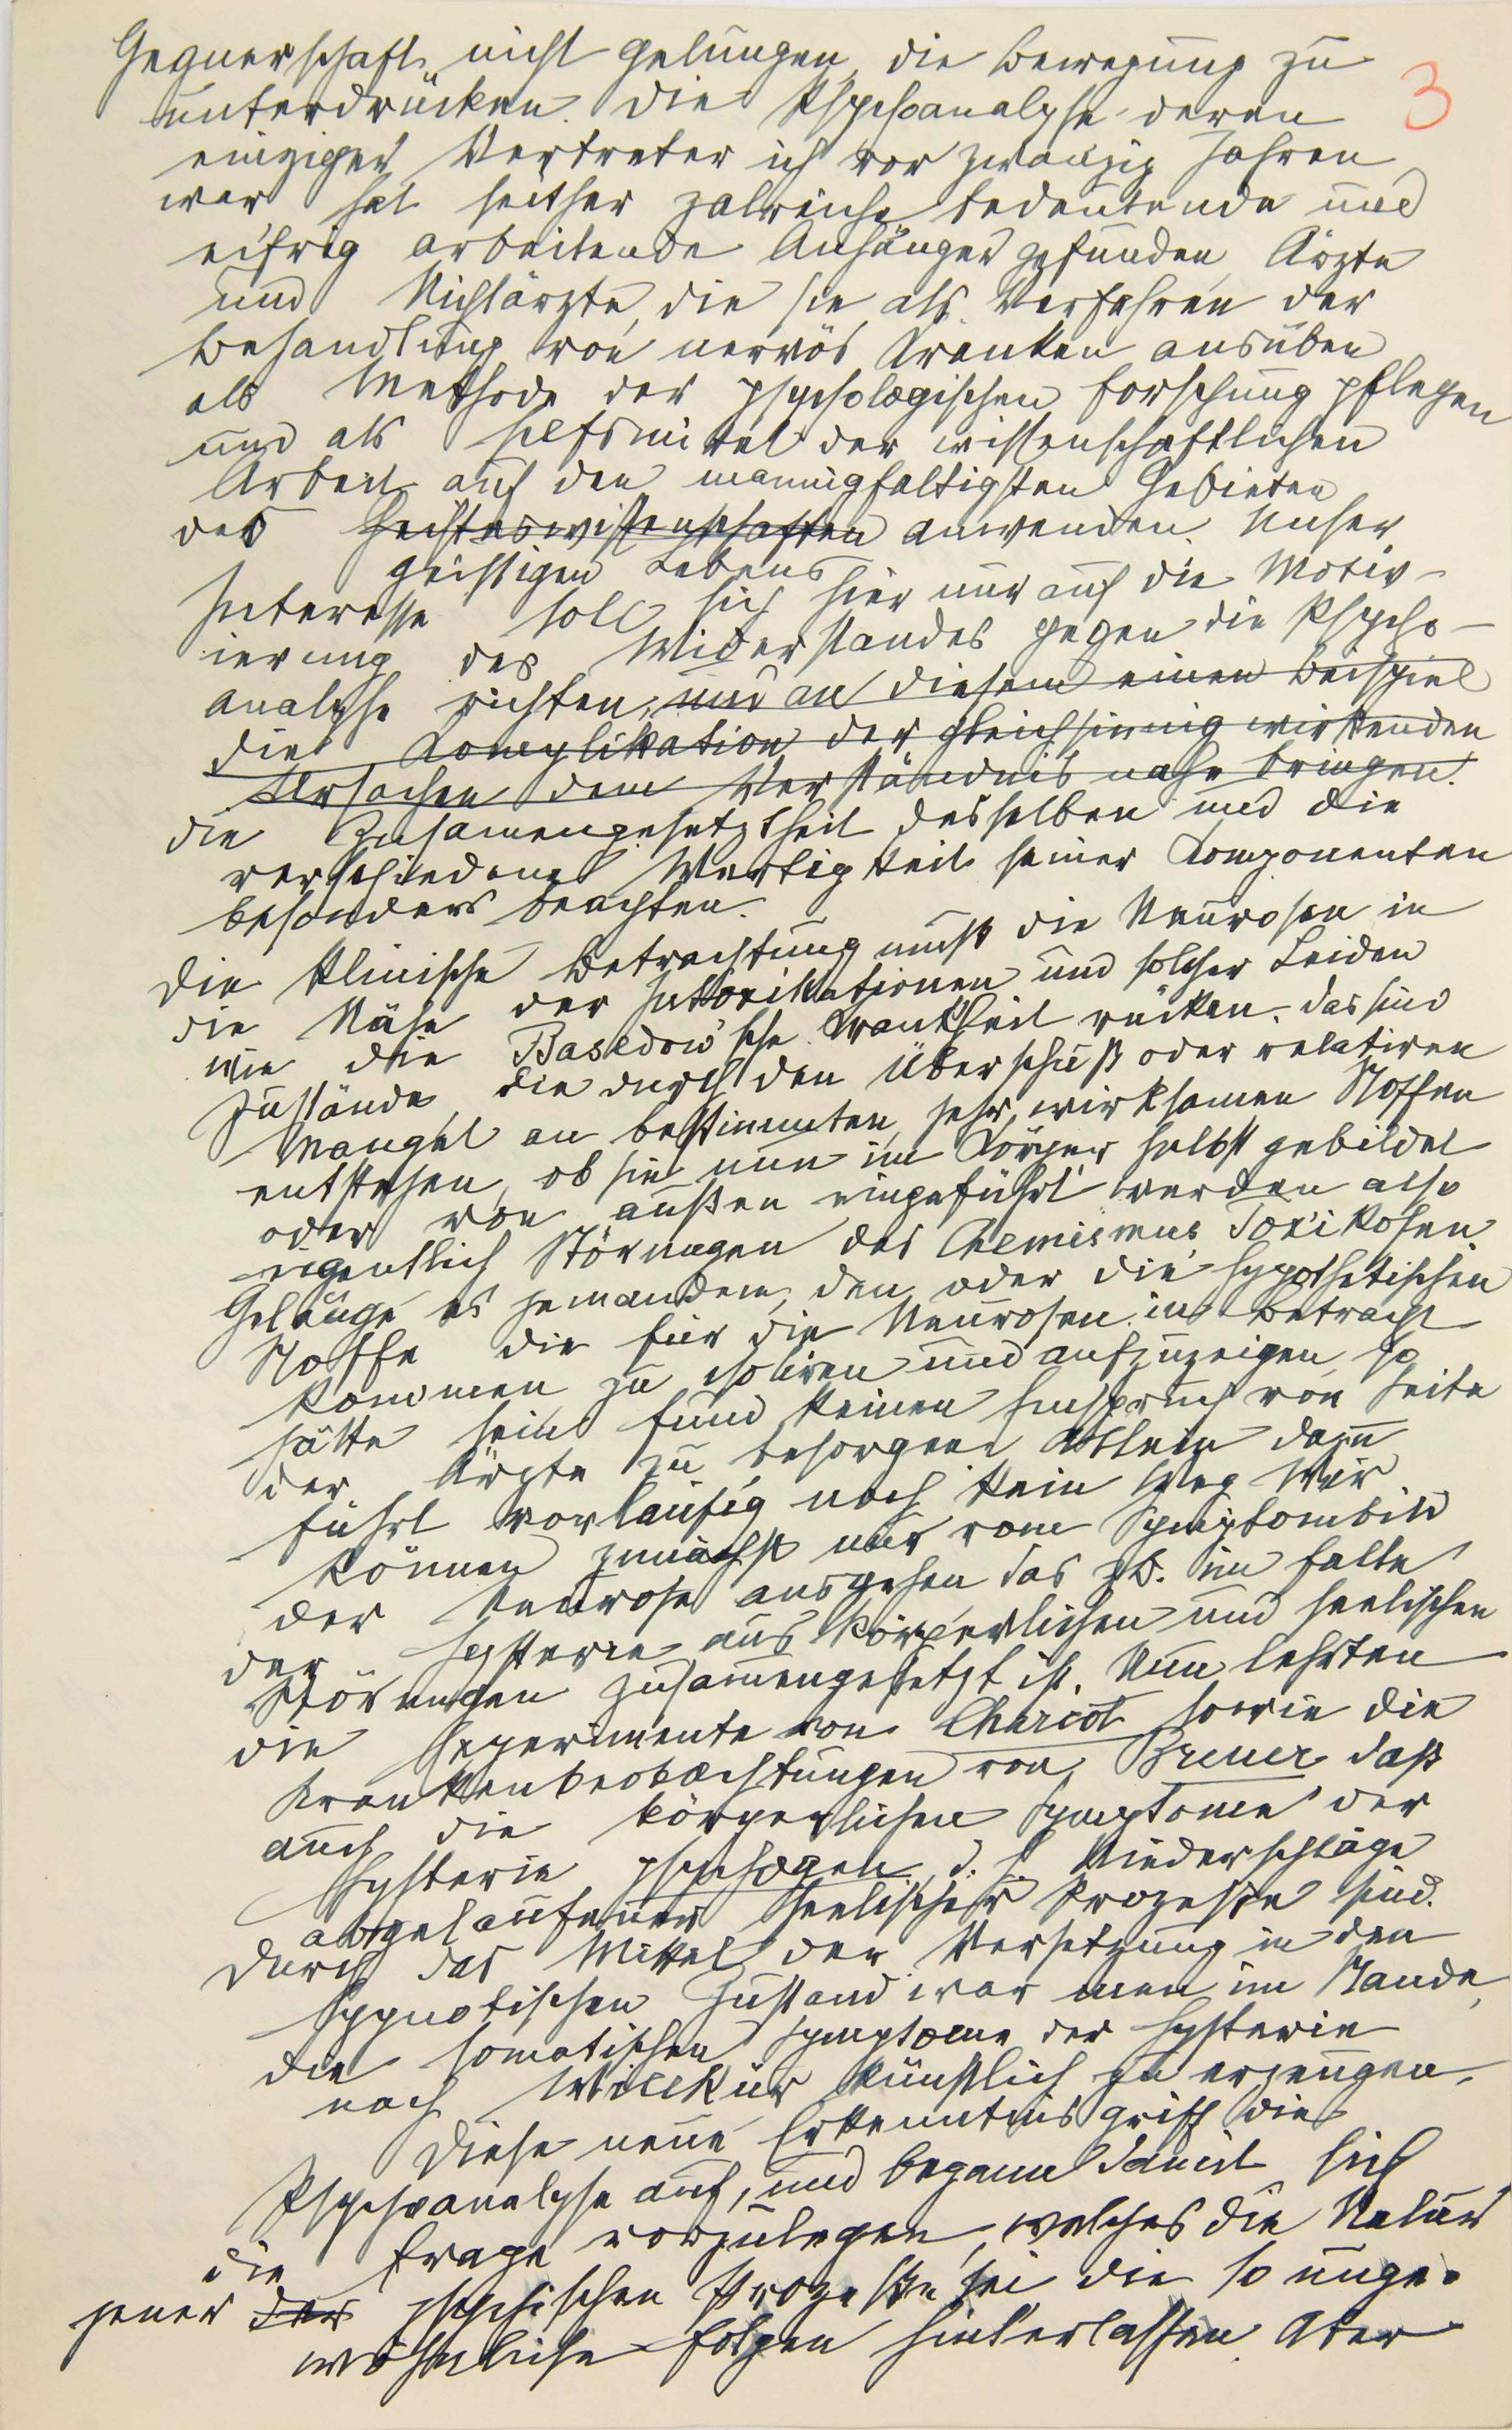 Gegnerschaft nicht gelungen, die Bewegung zu
3
unterdrücken. Die Psychoanalyse deren
einziger Vertreter ich vor zwanzig Jahren
war hat seither zalreiche bedeutende und
eifrig arbeitende Anhänger gefunden, Ärzte
und Nichtärzte, die sie als Verfahren der
Behandlung von nervös Kranken ausüben
als Methode der psychologischen Forschung pflegen
und als Hilfsmittel der wissenschaftlichen
Arbeit auf den mannigfaltigsten Gebieten
des Geisteswissenschaften anwenden. Unser
geistigen Lebens
Interesse soll sich hier nur auf die Motiv-
ierung des Widerstandes gegen die Psycho-
analyse richten, und an diesem einen Beispiel
die Komplikation der gleichsinnig wirkenden
Ursachen dem Verständnis nahe bringen.
die Zusamengesetztheit desselben und die
verschiedene Wertigkeit seiner Komponenten
besonders beachten.
Die klinische Betrachtung muß die Neurosen in
die Nähe der Intoxikationen und solcher Leiden
wie die Basedow'sche Krankheit rücken. Das sind
Zustände, die durch den Überschuß oder relativen
Mangel an bestimmten, sehr wirksamen Stoffen
entstehen, ob sie nun im Körper selbst gebildet
oder von außen eingeführt werden also
eigentlich Störungen des Chemismus Toxikosen
Gelänge es jemandem, den oder die hypothetischen
Stoffe die für die Neurosen in Betracht
kommen zu isoliren und aufzuzeigen so
hätte sein Fund keinen Einspruch von Seite
der Ärzte zu besorgen. Allein dazu
führt vorläufig noch kein Weg. Wir
können zunächst nur vom Symptombild
der Neurose ausgehen das zb. im Falle
der Hysterie aus körperlichen und seelischen
Störungen zusamengesetzt ist. Nun lehrten
die Experimente von Charcot sowie die
Krankenbeobachtungen von Breuer daß
auch die körperlichen Symptome der
Hysterie psychogen d. h. Niederschläge
abgelaufener seelischer Prozesse sind.
Durch das Mittel der Versetzung in den
hypnotischen Zustand war man im Stande,
die somatischen Symptome der Hysterie
nach Willkür künstlich zu erzeugen.
Diese neue Erkenntnis griff die
Psychoanalyse auf, und begann damit sich
die Frage vorzulegen, welches die Natur
jener der psychischen Prozesse sei die so unge-
wöhnliche Folgen hinterlassen. Aber